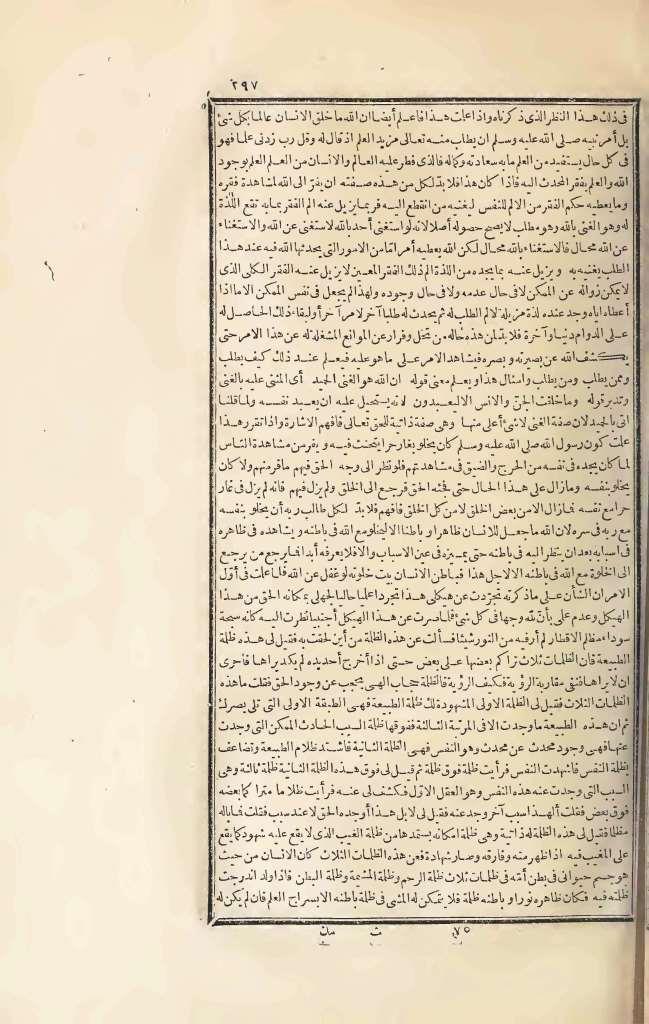 ٢٩٧
فى ذلك هذا النظر الذى ذكرناه واذا علمت هذا فاعلم أيضا ان الله ما خلق الانسان عالما بكل شئ
بل أمر نبيه صلى الله عليه وسلم ان يطلب منه تعالى مزيد العلم اذ قال له وقل رب زدنى علما فهو
فى كل حال يستفيد من العلم ما به سعادته وكماله فالذى فطر عليه العالم والانسان من العلم العلم بوجود
الله والعلم بفقر المحدث اليه فاذا كان هذا فلابد لكل من هذه صفته ان يفر الى الله لمشاهدة فقره
وما يعطيه حكم الفقر من الالم للنفس ليغنيه من انقطع اليه فربما يزيل عنه الم الفقر بما به تقع اللذة
له وهو الغنى بالله وهو مطلب لا يصح حصوله أصلا لانه لو استغنى أحد بالله لاستغنى عن الله والاستغناء
عن الله محال فالاستغناء بالله محال لكن الله يعطيه أمرا تما من الامور التى يحدثها الله فيه عند هذا
الطلب يغنيه به ويزيل عنه بما يجده من اللذة الم ذلك الفقر المعين لا يزيل عنه الفقر الكلى الذى
لا يمكن زواله عن الممكن لا فى حال عدمه ولا فى حال وجوده ولهذا لم يجعل فى نفس الممكن الا ما اذا
أعطاه اياه وجد عنده لذة مزيلة لالم الطلب له ثم يحدث له طلبا آخر لامر آخر أو لبقاء ذلك الحاصل له
على الدوام دنيا وآخرة فلابد لمن هذه حاله من تخل وفرار عن الموانع المشغلة له عن هذا الامر حتى
يكشف الله عن بصيرته وبصره فيشاهد الامر على ما هو عليه فيعلم عند ذلك كيف يطلب
وممن يطلب ومن يطلب وامثال هذا ويعلم معنى قوله ان الله هو الغنى الحميد أى المثنى عليه بالغنى
وتدبر قوله وما خلقت الجن والانس الا ليعبدون لانه يستحيل عليه ان يعبد نفسه ولما قلنا
اتى بالحميد لان صفة الغنى لا شئ أعلى منها وهى صفة ذاتية للحق تعالى فافهم الاشارة واذا تقرر هذا
علمت كون رسول الله صلى الله عليه وسلم كان يخلو بغار حرا يتحنث فيه ويفر من مشاهدة الناس
لما كان يجده فى نفسه من الحرج والضيق فى مشاهدتهم فلو نظر الى وجه الحق فيهم ما فر منهم ولا كان
يخلو بنفسه وما زال على هذا الحال حتى فجئه الحق فرجع الى الخلق ولم يزل فيهم فانه لم يزل فى غار
حرا مع نفسه فما زال الا من بعض الخلق لا من كل الخلق فافهم فلابد لكل طالب ربه أن يخلو بنفسه
مع ربه فى سره لان الله ما جعل للانسان ظاهرا وباطنا الا ليخلو مع الله فى باطنه ويشاهده فى ظاهره
فى اسبابه بعد ان ينظر اليه فى باطنه حتى يميزه فى عين الاسباب والا فلا يعرفه أبدا فما يرجع من يرجع
الى الخلوة مع الله فى باطنه الا لاجل هذا فباطن الانسان بيت خلوته لو غفل عن الله فلما علمت فى أول
الامر ان الشأن على ما ذكرته تجردت عن هيكلى هذا تجردا علميا حاليا لجهلى بمكانه الحق من هذا
الهيكل وعدم علمى بأن لله وجها فى كل شئ فلما صرت عن هذا الهيكل أجنبيا نظرت اليه كانه سبحة
سوداء مظلم الاقطار لم أر فيه من النور شيئا فسألت عن هذه الظلمة من أين لحقت به فقيل لى هذه ظلمة
الطبيعة فان الظلمات ثلاث تراكم بعضها على بعض حتى اذا أخرج أحد يده لم يكد يراها فاحرى
ان لا يراها فنفى مقاربة الرؤية فكيف الرؤية فالظلمة حجاب الهى يحجب عن وجود الحق فقلت ما هذه
الظلمات الثلاث فقيل لى الظلمة الاولى المشهودة لك ظلمة الطبيعة فهى الطبقة الاولى التى تلى بصرك
ثم ان هذه الطبيعة ما وجدت الا فى المرتبة الثالثة ففوقها ظلمة السبب الحادث الممكن التى وجدت
عنها فهى وجود محدث عن محدث وهو النفس فهى الظلمة الثانية فاشتد ظلام الطبيعة وتضاعف
بظلمة النفس فاشهدت النفس فرأيت ظلمة فوق ظلمة ثم قيل لى فوق هذه الظلمة الثانية ظلمة ثالثة وهى
السبب التى وجدت عنه هذه النفس وهو العقل الاول فكشف لى عنه فرأيت ظلاما متراكما بعضه
فوق بعض فقلت ألهذا سبب آخر وجد عنه فقيل لى لا بل هذا أوجده الحق لا عند سبب فقلت فما باله
مظلما فقيل لى هذه الظلمة له ذاتية وهى ظلمة امكانه يستمدها من ظلمة الغيب الذى لا يقع عليه شهود كما يقع
على المغيب فيه اذا ظهر منه وفارقه وصار شهادة فعن هذه الظلمات الثلاث كان الانسان من حيث
هو جسم حيوانى فى بطن أمه فى ظلمات ثلاث ظلمة الرحم وظلمة المشيمة وظلمة البطن فاذا ولد اندرجت
ظلمته فيه فكان ظاهره نورا وباطنه ظلمة فلا يتمكن له المشى فى ظلمة باطنه الا بسراج العلم فان لم يكن له
٧٥
ث